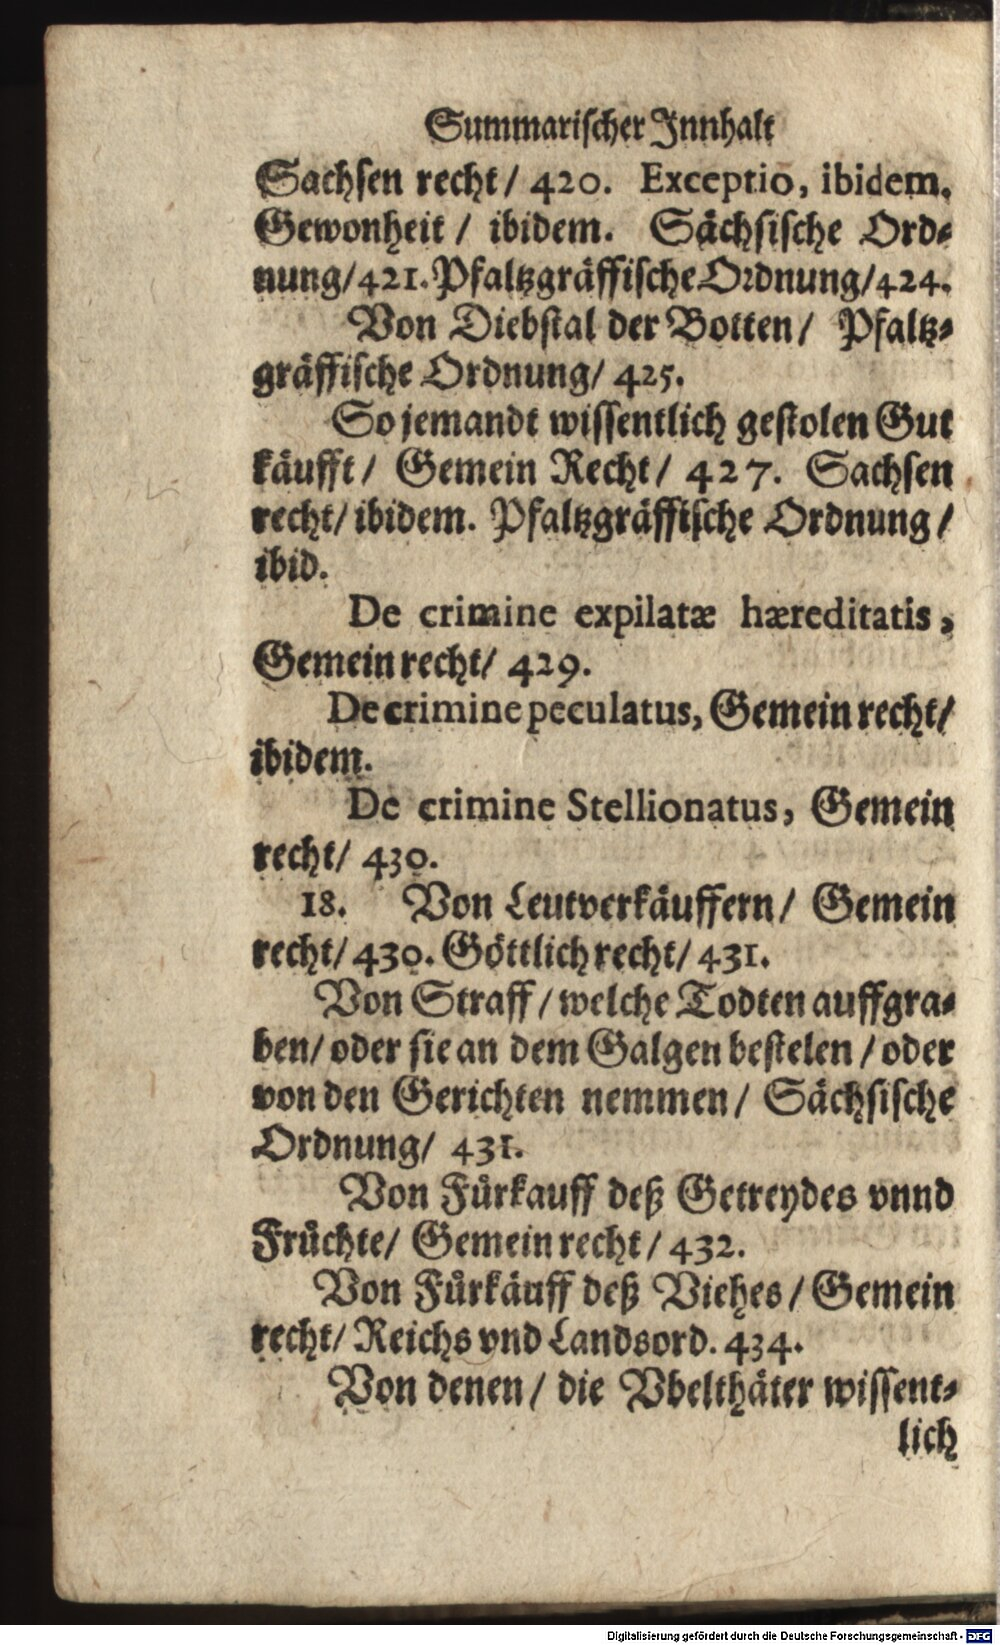 Summarischer Innhalt
Sachsen recht/ 420. Exceptio, ibidem.
Gewonheit / ibidem. Sächsische Ord-
nung/421. Pfaltzgräffische Ordnung/424.
Von Diebstal der Botten/ Pfaltz-
gräffische Ordnung/ 425.
So jemandt wissentlich gestolen Gut
käufft/ Gemein Recht/ 427. Sachsen
recht/ ibidem. Pfaltzgräffische Ordnung/
ibid.
De crimine expilatæ hæreditatis,
Gemein recht/ 429.
De crimine peculatus, Gemein recht/
ibidem.
De crimine Stellionatus, Gemein
recht/ 430.
18. Von Leutverkäuffern/ Gemein
recht/ 430. Göttlich recht/ 431.
Von Straff/ welche Todten auffgra-
ben/ oder sie an dem Galgen bestelen/ oder
von den Gerichten nemmen/ Sächsische
Ordnung/ 431.
Von Fürkauff deß Getreydes vnnd
Früchte/ Gemein recht/ 432.
Von Fürkäuff deß Viehes/ Gemein
recht/ Reichs vnd Landsord. 434.
Von denen/ die Vbelthäter wissent-
lich
Digitalisierung gefördert durch die Deutsche Forschungsgemeinschaft - DFG